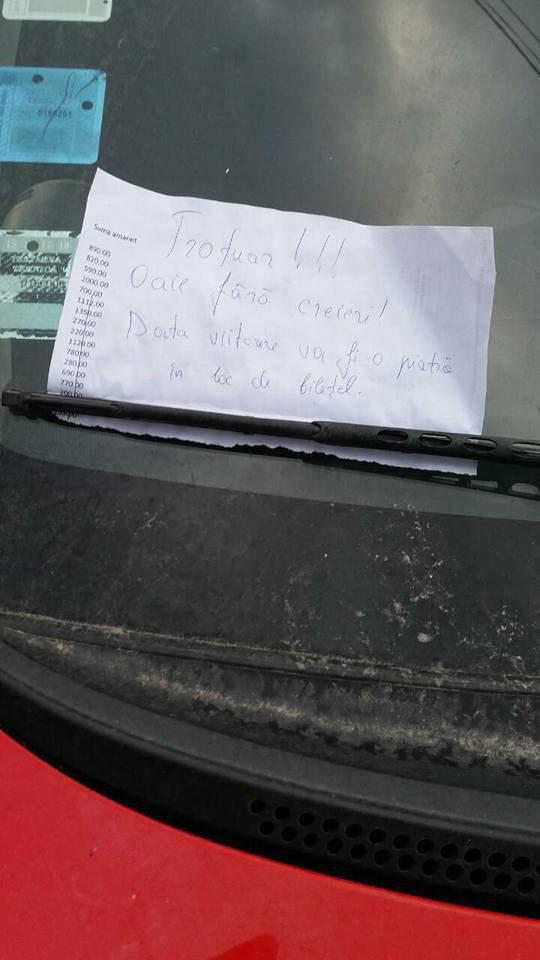 0186261
15 17 18
Suma amanet
890.00
820.00
590.00
2000.00
700.00
1110.00
1350.00
270.00
220.00
1120.00
780.00
280.00
690.00
770.00
Trotuar!!!
Oaie fără creieri!
Data viitoare va fi o piatră
în loc de bilețel.